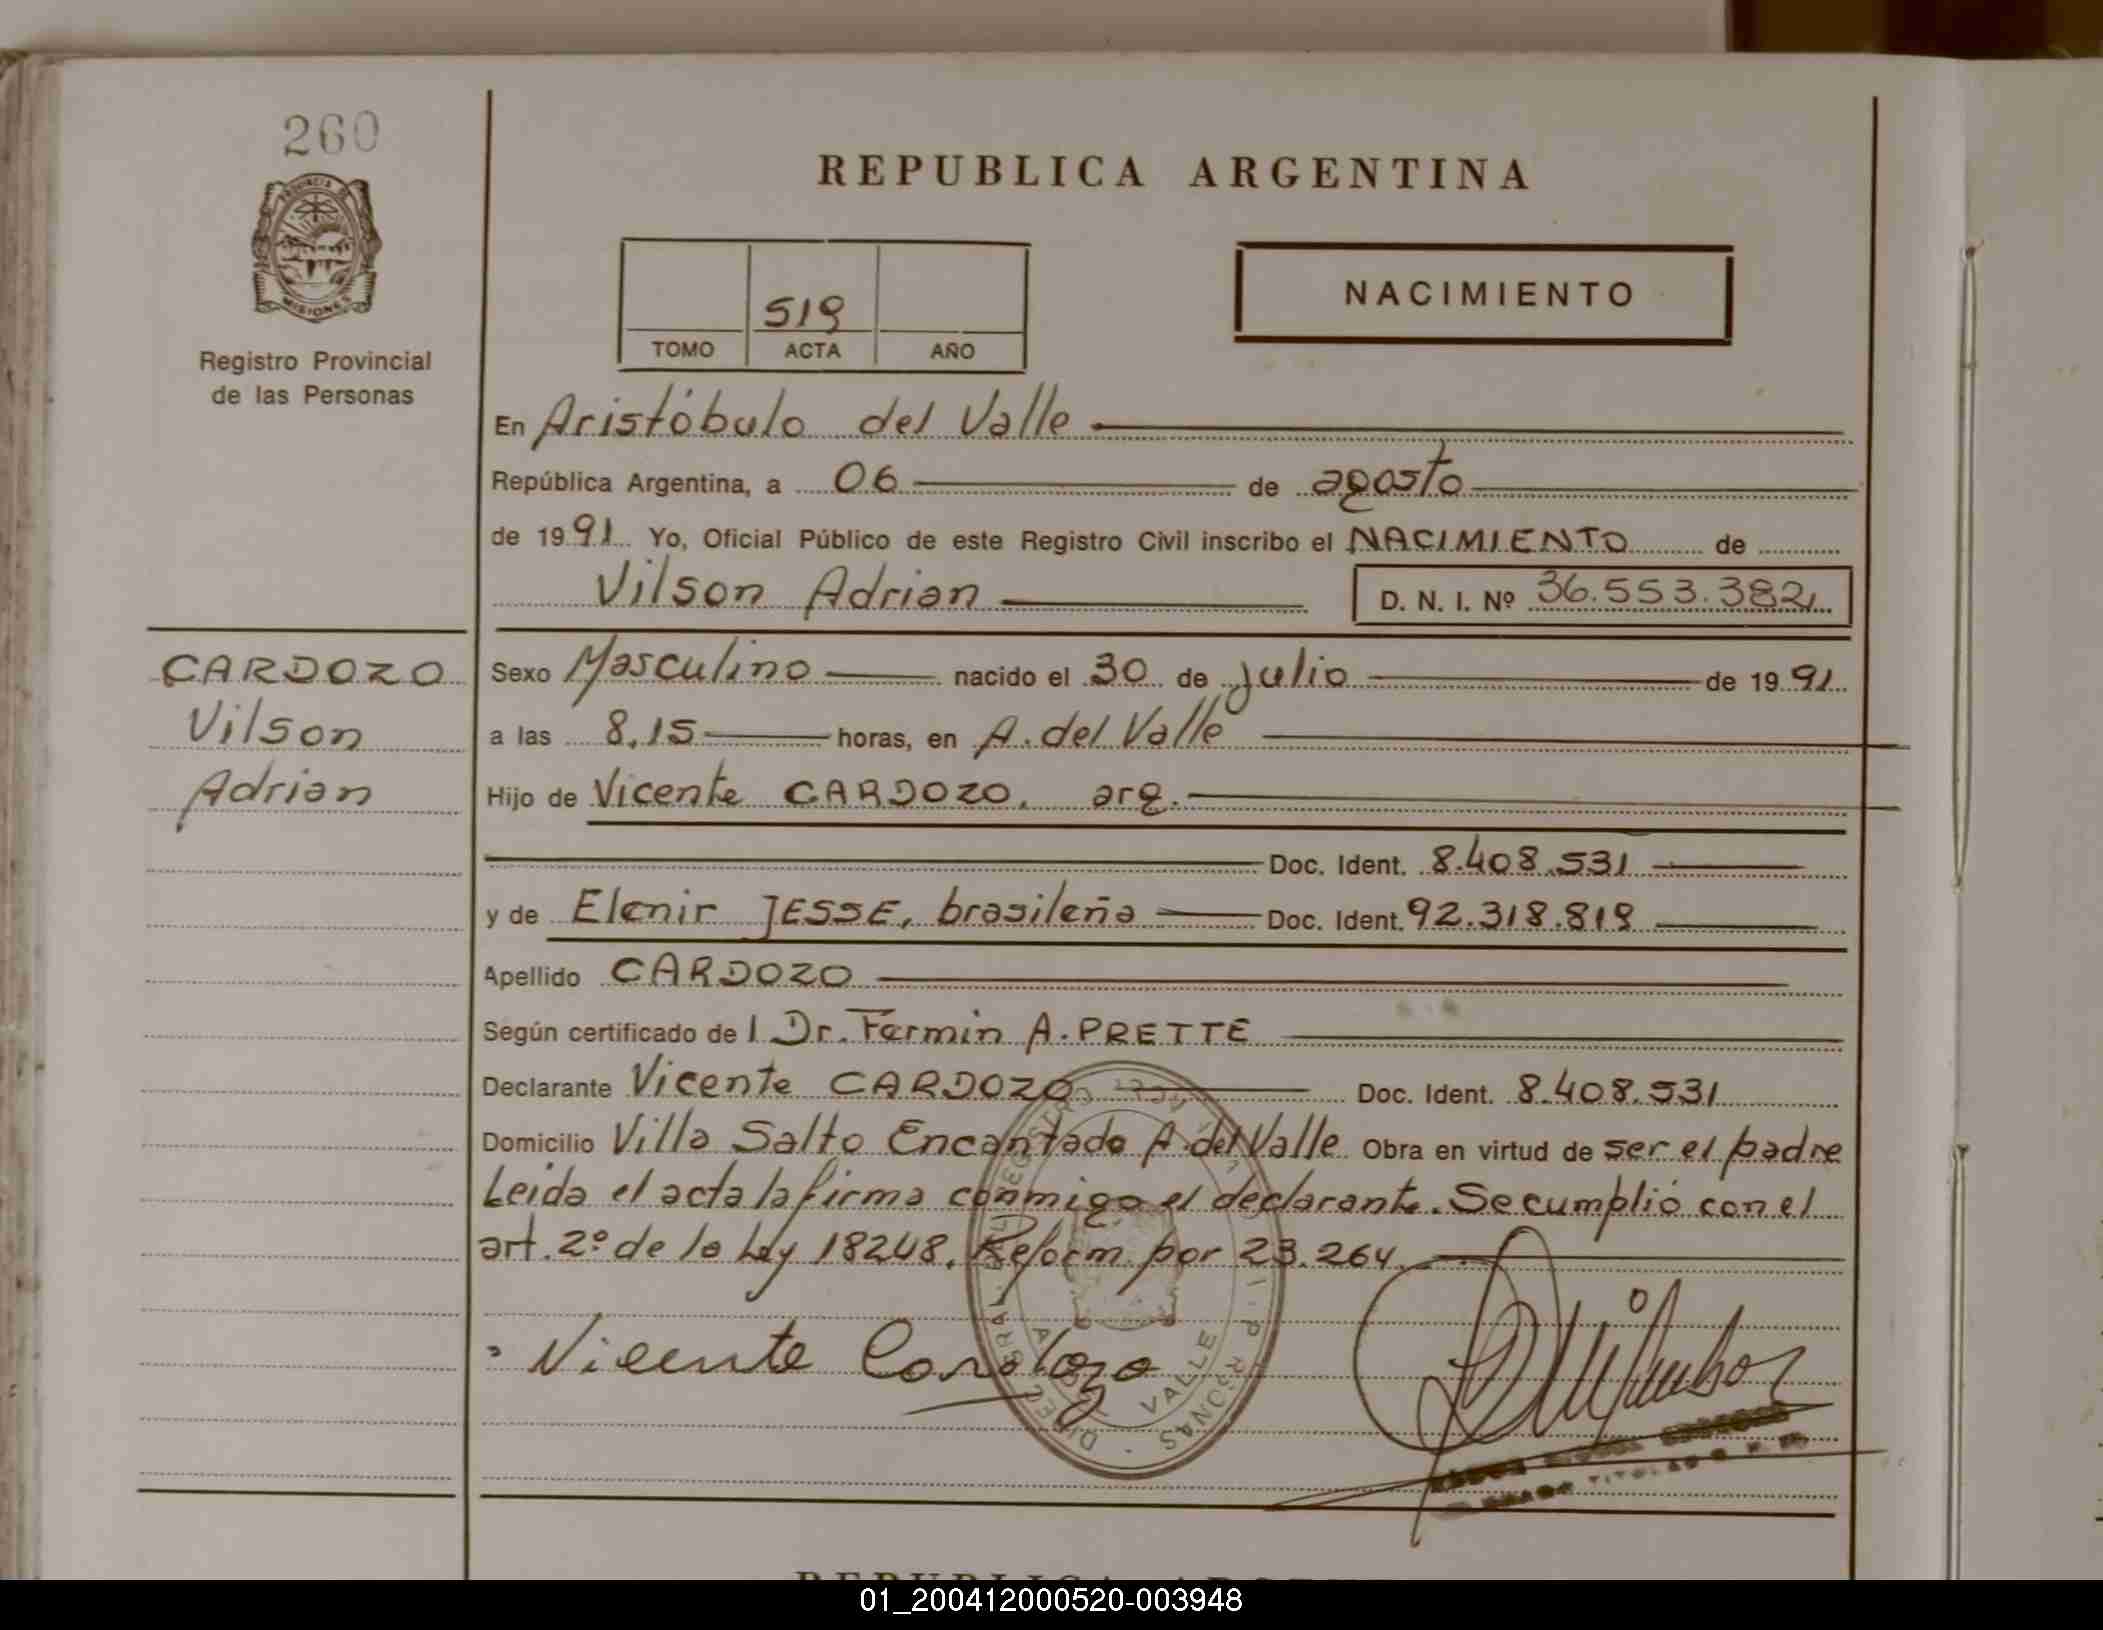 260
REPUBLICA ARGENTINA
PROVINCIA DE
MISIONES
Registro Provincial
de las Personas
519
TOMO ACTA AÑO
NACIMIENTO
En Aristóbulo del Valle
República Argentina, a 06 de agosto
de 1991 Yo, Oficial Público de este Registro Civil inscribo el NACIMIENTO de
Vilson Adrian D. N. I. Nº 36.553.382
CARDOZO
Vilson
Adrian
Sexo Masculino nacido el 30 de Julio de 1991
a las 8,15 horas, en A. del Valle
Hijo de Vicente CARDOZO. arg.
Doc. Ident. 8.408.531
y de Elenir JESSE, brasileña Doc. Ident. 92.318.819
Apellido CARDOZO
Según certificado de l Dr. Fermin A. PRETTE
Declarante Vicente CARDOZO Doc. Ident. 8.408.531
Domicilio Villa Salto Encantado A. del Valle Obra en virtud de ser el padre
Leida el acta la firma conmigo el declarante. Se cumplió con el
art. 2º de la Ley 18248. Reform. por 23.264.
Vicente Cardozo
VALLE
REPUBLICA
01_200412000520-003948